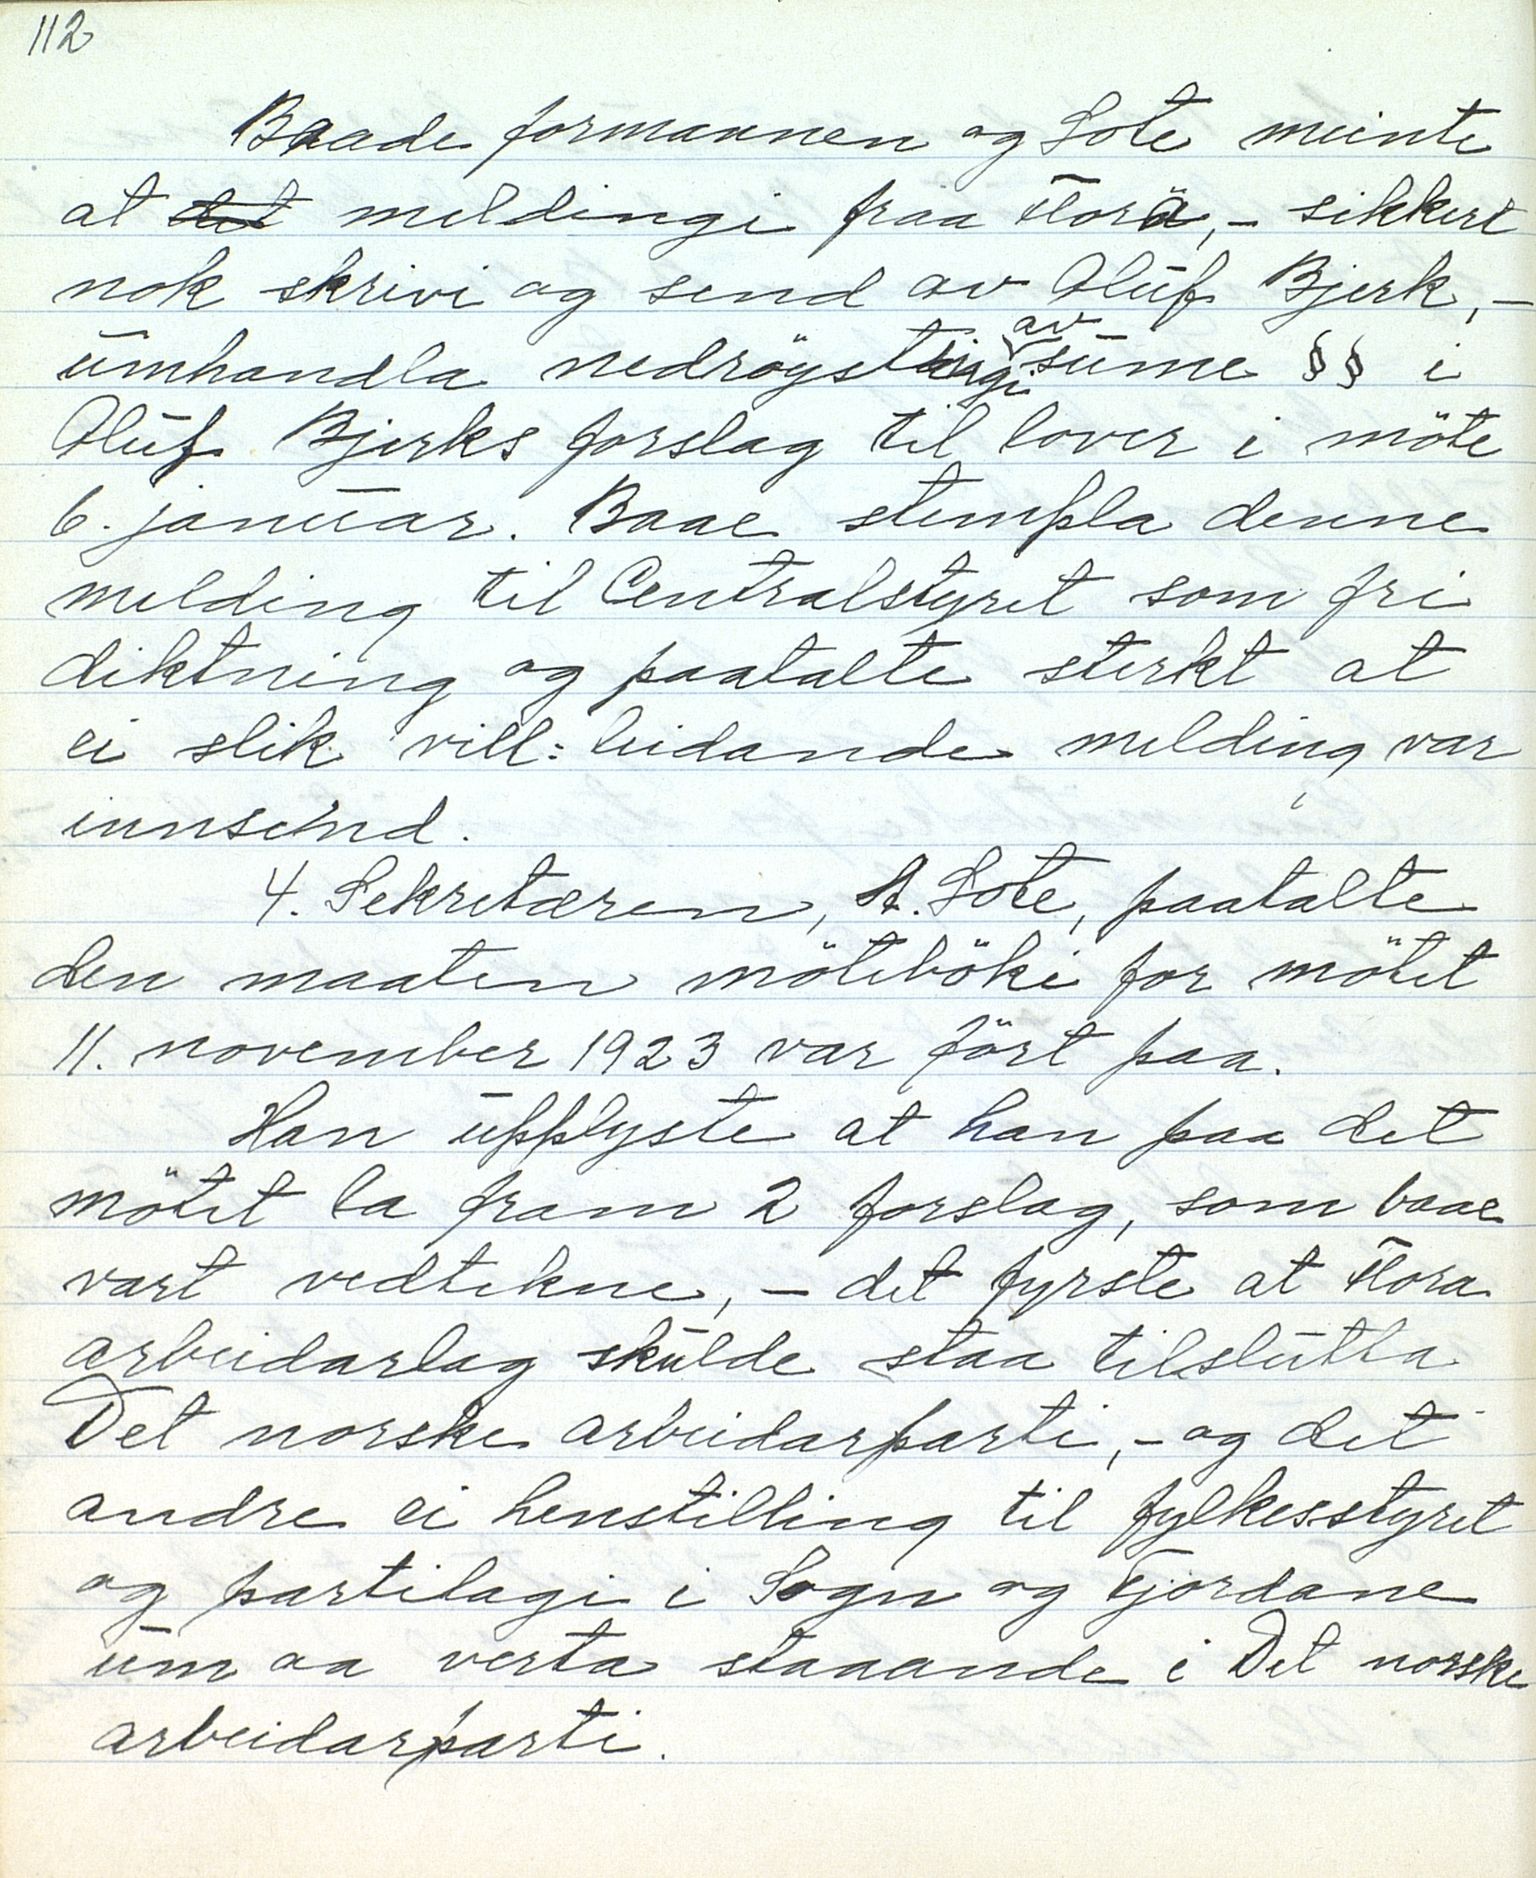 112
Baade formannen og Sote meinte
at det meldingi fraa Flora, - sikkert
nok skrivi og send av Oluf Bjerk, -
umhandla nedröystingi av sume §§ i
Oluf Bjerks forslag til lover i möte
6. januar. Baae stempla denne
melding til Centralstyret som fri
diktning og paatalte sterkt at
ei slik vill: leidande melding var
innsend.
4. Sekretæren, A. Sote, paatalte
den maaten möteböki for mötet
11. november 1923 var fört paa.
Han upplyste at han paa det
mötet la fram 2 forslag, som baae
vart vedtekne, - det fyrste at Flora
arbeidarlag skulde staa tilslutta
Det norske arbeidarparti, - og det
andre ei henstilling til fylkesstyret
og partilagi i Sogn og Fjordane
um aa verta staaande i Det norske
arbeidarparti.